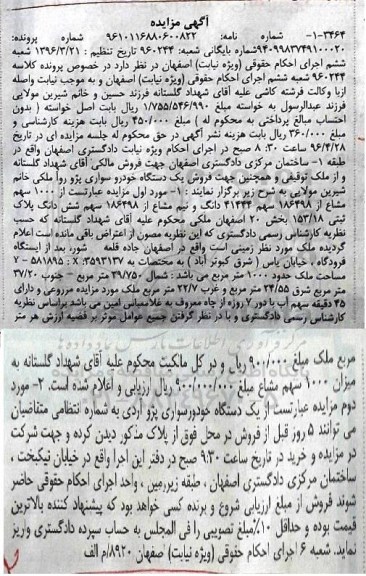 آگهی مزایده
۳۴۶۴-۱- شماره نامه: ۹۶۱۰۱۱۶۸۸۰۶۰۰۸۲۲ شماره پرونده:
۹۴۰۹۹۸۳۷۴۹۱۰۰۰۲۰ شماره بایگانی شعبه: ۹۶۰۲۴۴ تاریخ تنظیم : ۱۳۹۶/۳/۲۱ شعبه
ششم اجرای احکام حقوقی (ویژه نیابت) اصفهان در نظر دارد در خصوص پرونده کلاسه
۹۶۰۲۴۴ شعبه ششم اجرای احکام حقوقی (ویژه نیابت) اصفهان و به موجب نیابت واصله
ازبا وکالت فرشته کاشی علیه آقای شهداد گلستانه فرزند حسین و خانم شیرین مولایی
فرزند عبدالرسول به خواسته مبلغ ۱/۷۵۵/۵۴۶/۹۹۰ ریال بابت اصل خواسته ( بدون
احتساب مبالغ پرداختی به محکوم له ) مبلغ ۴۵۰/۰۰۰ ریال بابت هزینه کارشناسی و
مبلغ ۳۶۰/۰۰۰ ریال بابت هزینه نشر آگهی در حق محکوم له جلسه مزایده ای در تاریخ
۹۶/۴/۲۸ ساعت ۸:۳۰ صبح در اجرای احکام ویژه نیابت دادگستری اصفهان واقع در
طبقه ۱- ساختمان مرکزی دادگستری اصفهان جهت فروش مالکی آقای شهداد گلستانه
و از ملک توقیفی و همچنین جهت فروش یک دستگاه خودرو سواری پژو روآ ملکی خانم
شیرین مولایی به شرح زیر برگزار نمایند : ۱- مورد اول مزایده عبارتست از ۱۰۰۰ سهم
مشاع از ۱۸۶۴۹۸ سهم ۴۱۴۴۴ دانگ و نیم مشاع از ۱۸۶۴۹۸ سهم شش دانگ پلاک
ثبتی ۱۵۳/۱۸ بخش ۲۰ اصفهان ملکی محکوم علیه آقای شهداد گلستانه که حسب
نظریه کارشناس رسمی دادگستری که این نظریه مصون از اعتراض باقی مانده است اعلام
گردیده ملک مورد نظر زمینی است واقع در اصفهان جاده قلعه شور بعد از ایستگاه
فرودگاه ، خیابان یاس ( شرق کبوتر آباد ) به مختصات به x :۳۵۹۳۱۳۷ : ۵۸۱۸۹۵ - ۷
مساحت ملک حدود ۱۰۰۰ متر مربع می باشد : شمال ۳۹/۷۵۰ متر مربع - جنوب ۳۷/۲۰
متر مربع شرق ۲۴/۵۵ متر مربع و غرب ۲۲/۷ متر مربع ملک مورد مزایده مزروعی و دارای
۴۵ دقیقه سهم آب با دور ۷ روزه از چاه معروف به غلامعباس امین می باشد براساس نظریه
کارشناس رسمی دادگستری و با در نظر گرفتن جمیع عوامل موثر بر قضیه ارزش هر متر
مربع ملک مبلغ ۹۰۰/۰۰۰ ریال و در کل مالکیت محکوم علیه آقای شهداد گلستانه به
میزان ۱۰۰۰ سهم مشاع مبلغ ۹۰۰/۰۰۰/۰۰۰ ریال ارزیابی و اعلام شده است. ۲- مورد
دوم مزایده عبارتست از یک دستگاه خودرو سواری پژو آردی به شماره انتظامی متقاضیان
می توانند ۵ روز قبل از فروش در محل فوق از پلاک مذکور دیدن کرده و جهت شرکت
در مزایده و خرید در تاریخ ساعت ۹:۳۰ صبح در دفتر این اجرا واقع در خیابان نیکبخت ،
ساختمان مرکزی دادگستری اصفهان ، طبقه زیرزمین ، واحد اجرای احکام حقوقی حاضر
شوند فروش از مبلغ ارزیابی شروع و برنده کسی خواهد بود که پیشنهاد کننده بالاترین
قیمت بوده و حداقل ۱۰٪ مبلغ تصویبی را فی المجلس به حساب سپرده دادگستری واریز
نماید. شعبه ۶ اجرای احکام حقوقی (ویژه نیابت) اصفهان ۸۹۲۰/م الف